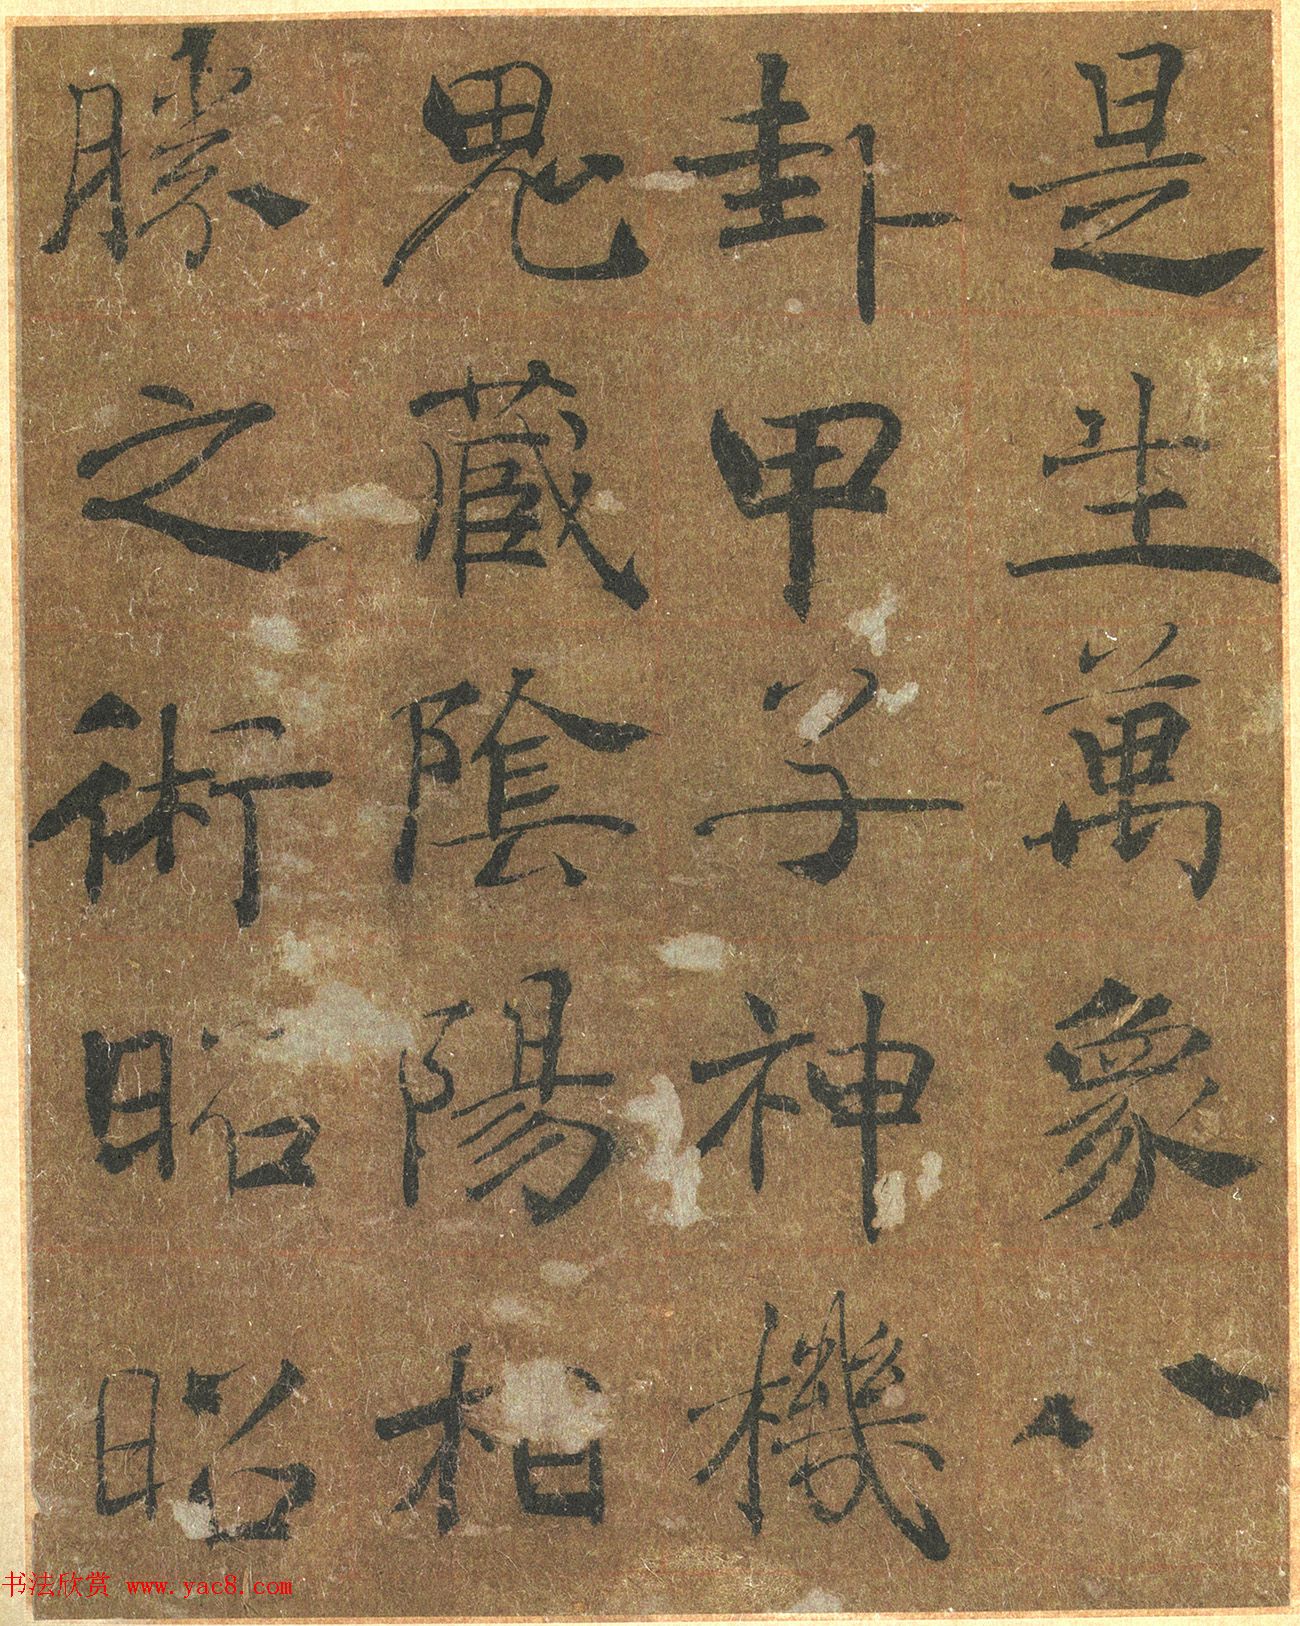 是生萬象八
卦甲子神機
鬼藏陰陽相
勝之術昭昭
书法欣赏 www.yac8.com